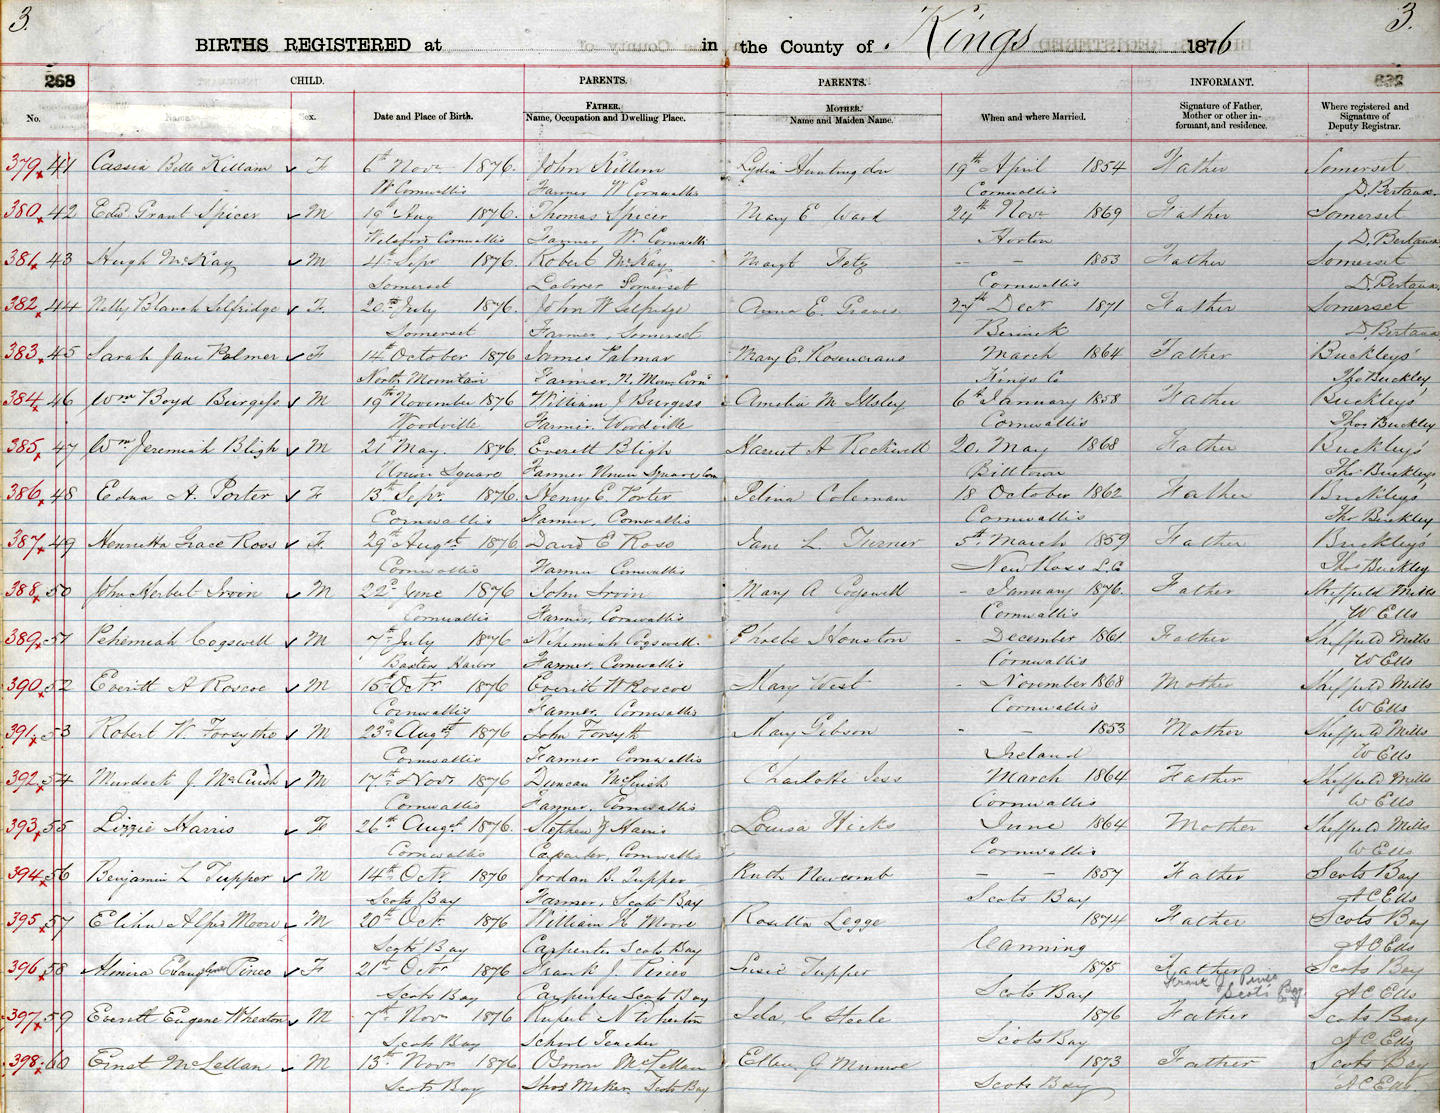 3. 3.
BIRTHS REGISTERED at in the County of Kings 1876
268 CHILD. PARENTS. PARENTS. INFORMANT.
No. Sex. Date and Place of Birth. FATHER. Name, Occupation and Dwelling Place. MOTHER. Name and Maiden Name. When and where Married. Signature of Father, Mother or other informant, and residence. Where registered and Signature of Deputy Registrar.
379 41 Cassia Belle Killam F 6th Novr 1876. John Killam Lydia Huntingdon 19th April 1854 Father Somerset
W Cornwallis Farmer W Cornwallis Cornwallis D. Bertaux
380 42 Edd Grant Spicer M 19th Aug 1876. Thomas Spicer Mary E Ward 24th Novr 1869 Father Somerset
Welsford Cornwallis Farmer W. Cornwallis Horton D. Bertaux
381 43 Hugh McKay M 4th Sepr 1876. Robert McKay Margt Fetz - - 1853 Father Somerset
Somerset Laborer Somerset Cornwallis D. Bertaux
382 44 Nelly Blanch Selfridge F. 20th July 1876. John W Selfridge Anna E. Graves 27th Decr 1871 Father Somerset
Somerset Farmer, Somerset Berwick D. Bertaux
383 45 Sarah Jane Palmer F 14th October 1876 James Palmer Mary E. Rosencrans March 1864 Father Buckleys'
North Mountain Farmer, N. Moun. Corns Kings Co Thos Buckley
384 46 Wm Boyd Burgess M 19th November 1876 William J Burgess Amelia M Illsley 6th January 1858 Father Buckleys'
Woodville Farmer, Woodville Cornwallis Thos Buckley
385 47 Wm Jeremiah Bligh M 21st May. 1876. Everett Bligh Harriet A Rockwell 20. May 1868 Father Buckleys'
Union Square Farmer Union Square Corn Billtown Thos Buckley
386 48 Edna A. Porter F 13th Sepr 1876. Henry E. Porter Coleman 18 October 1862 Father Buckleys'
Cornwallis Farmer, Cornwallis Cornwallis Thos Buckley
387 49 Henrietta Grace Ross F 29th Augst 1876. David E Ross Jane L. Turner 5th March 1859 Father Buckleys'
Cornwallis Farmer Cornwallis New Ross L.C. Thos Buckley
388 50 John Herbert Irvin M 22d June 1876 John Irvin Mary A Cogswell - January 1876. Father Sheffield Mills
Cornwallis Farmer, Cornwallis Cornwallis W Ells
389 51 Pehemiah Cogswell M 7th July 1876 Nehemiah Cogswell. Phoebe Houston - December 1861 Father Sheffield Mills
Baxter Harbor Farmer. Cornwallis Cornwallis W Ells
390 52 Everitt A Roscoe M 15th Octr 1876 Everitt W Roscoe Mary West - November 1868 Mother Sheffield Mills
Cornwallis Farmer, Cornwallis Cornwallis W Ells
391 53 Robert W. Forsythe M 23d Augst 1876 John Forsyth Mary Gibson - - 1853 Mother Sheffield Mills
Cornwallis Farmer Cornwallis Ireland W Ells
392 54 Murdock J. McCuish M 17th Novr 1876 Duncan McCuish Charlotte Jess March 1864 Father Sheffield Mills
Cornwallis Farmer, Cornwallis Cornwallis W Ells
393 55 Lizzie Harris F 26th Augst 1876. Stephen Harris Louisa Hicks June 1864 Mother Sheffield Mills
Cornwallis Carpenter, Cornwallis Cornwallis W Ells
394 56 Benjamin L Tupper M 14th Octr 1876 Jordan B. Tupper Ruth Newcomb - - 1857 Father Scots Bay
Scots Bay Farmer, Scots Bay Scots Bay A C Ells
395 57 Elihu Alfrd Moore M 20th Oct. 1876 William H Moore Rosetta Legge 1874 Father Scots Bay
Scots Bay Carpenter Scots Bay Canning A C Ells
396 58 Almira Evangeline Pineo F 21st Octr 1876 Frank J. Pineo Susie Tupper 1875 Father Scots Bay
Scots Bay Carpenter Scots Bay Scots Bay Frank J Pineo Scots Bay A C Ells
397 59 Everett Eugene Wheaton M 7th Nov 1876 Rupert N Wheaton Ida. C Steele 1876 Father Scots Bay
Scots Bay School Teacher Scots Bay A C Ells
398 60 Ernst McLellan M 13th Novr 1876 Osmon McLellan Ellen J Munroe 1873 Father Scots Bay
Scots Bay Shoe Maker. Scots Bay Scots Bay A C Ells